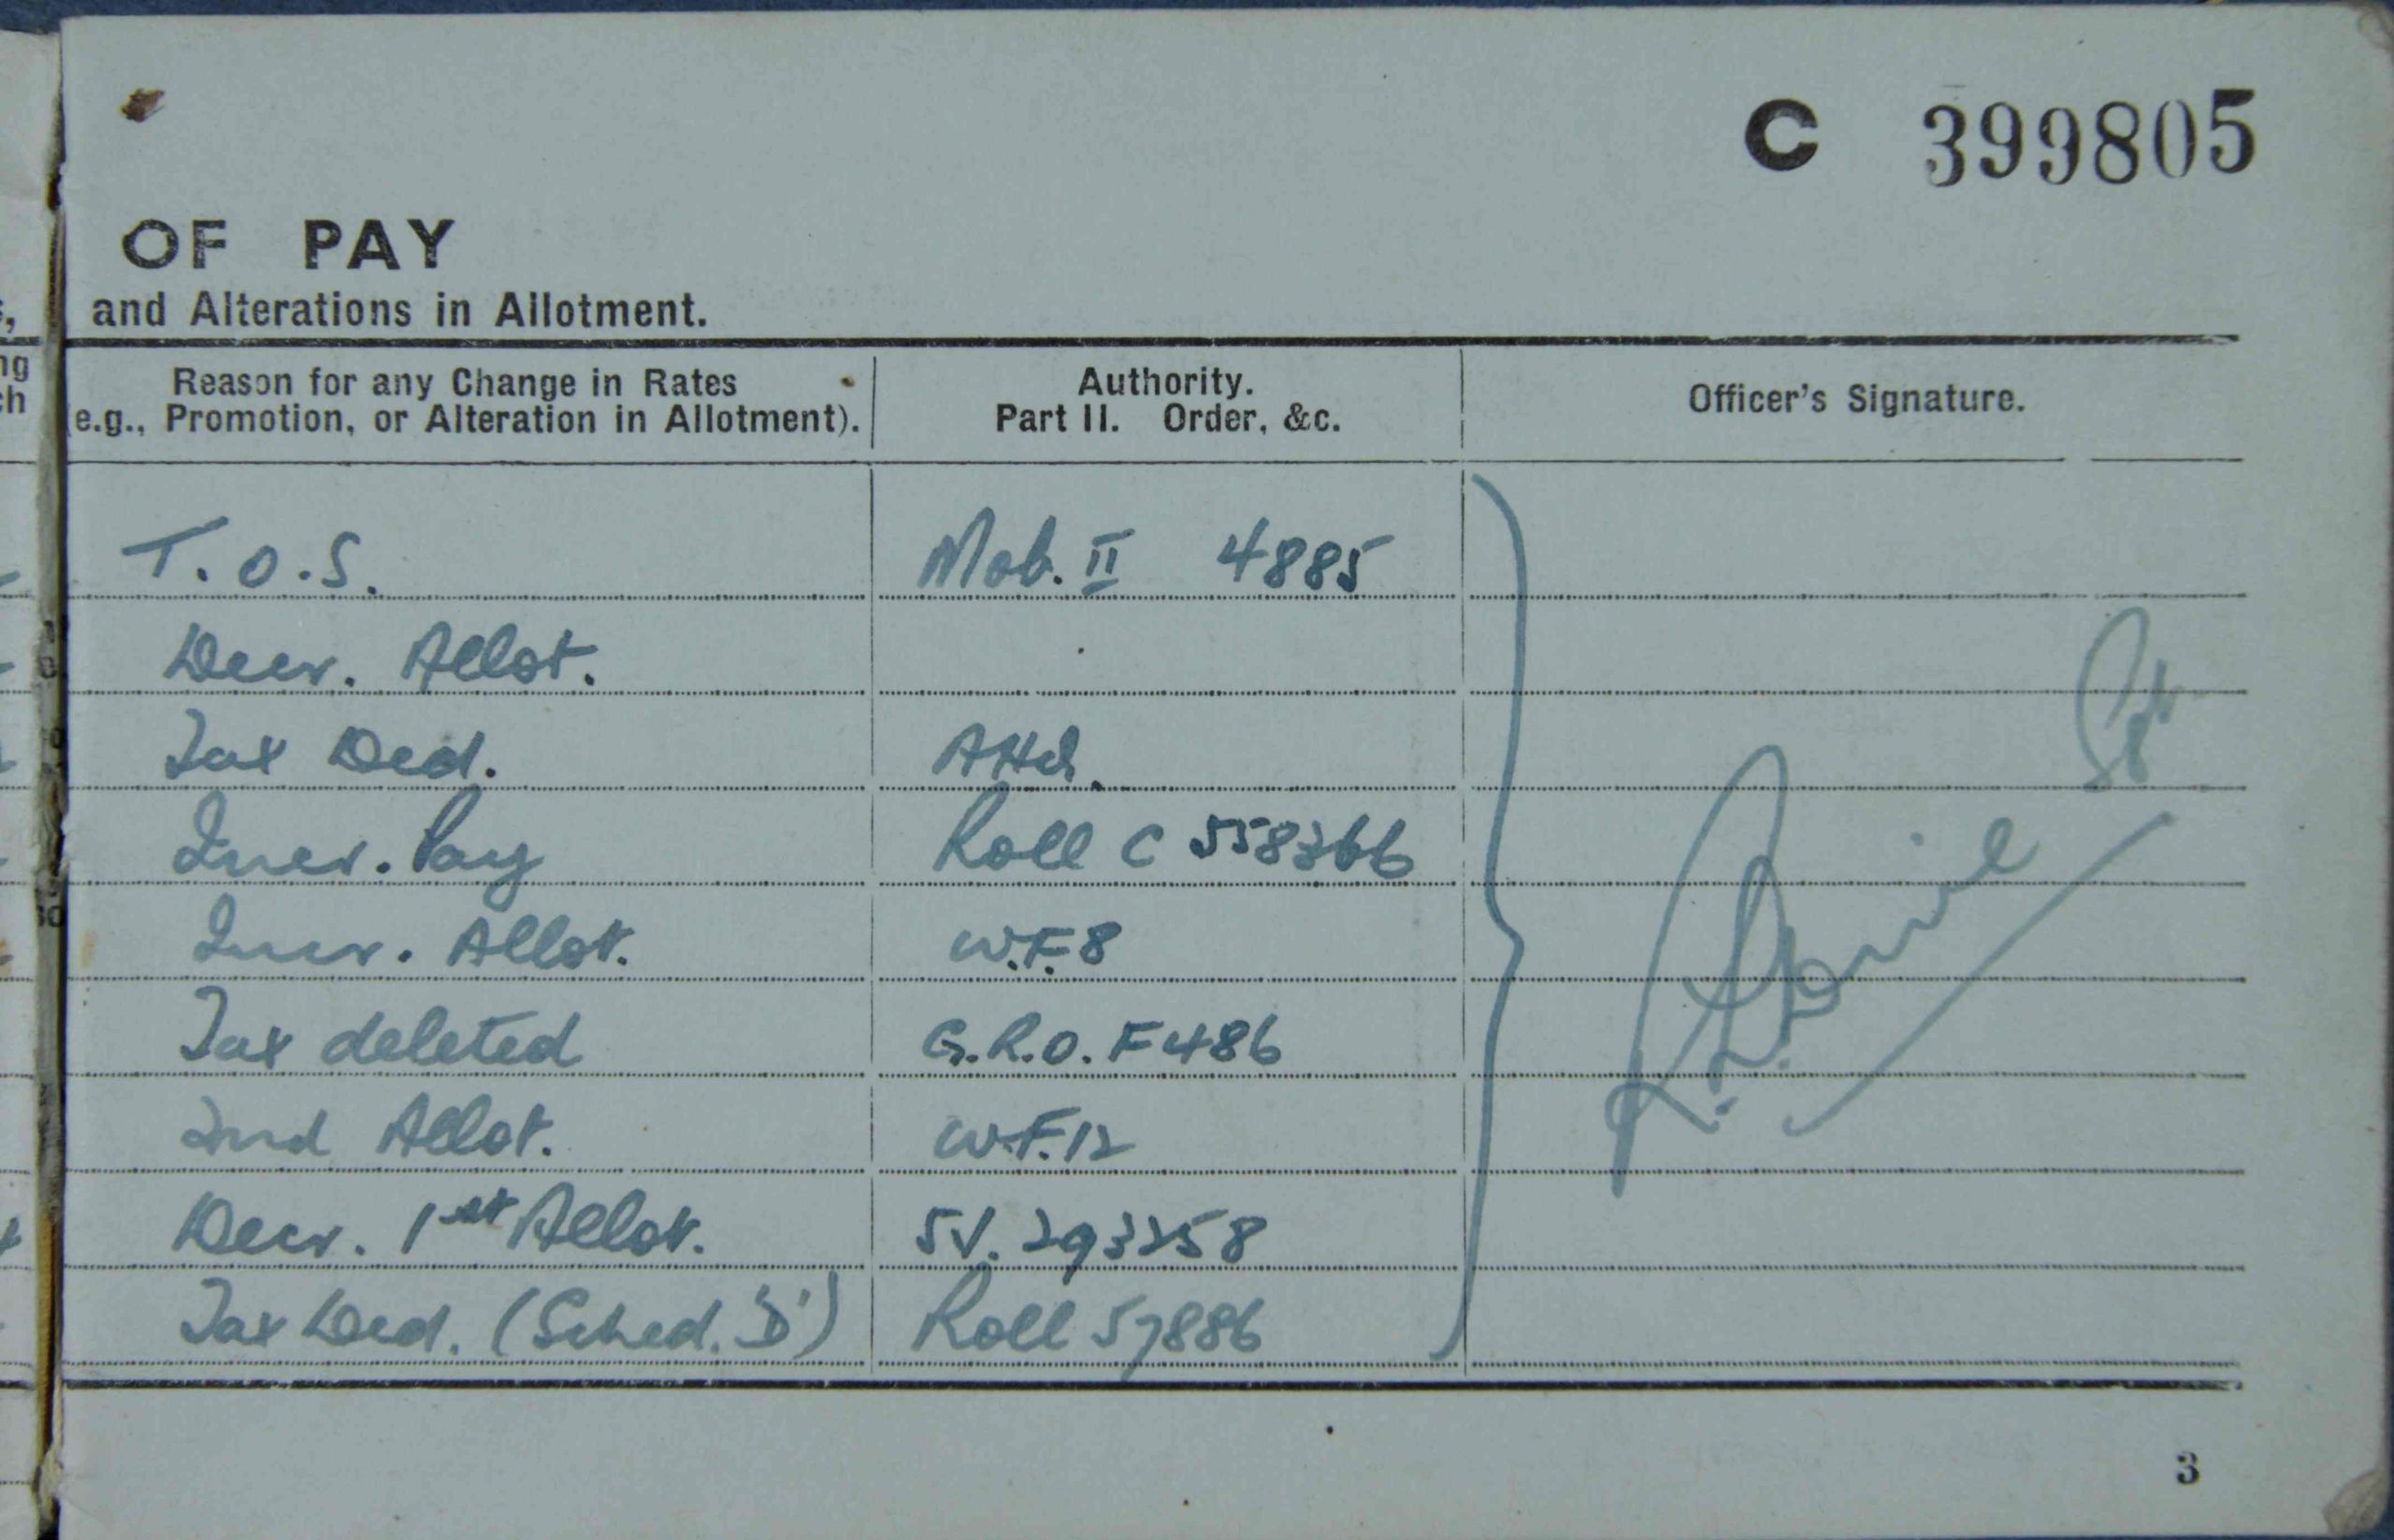 C 399805
OF PAY
and Alterations in Allotment.
Reason for any Change in Rates
(e.g., Promotion, or Alteration in Allotment).
Authority.
Part II. Order, &c.
Officer's Signature.
T.O.S. Mob. II 4885
Decr. Allot.
Tax Ded. Attd.
Incr. Pay Roll C 558366
Incr. Allot. W.F.8
Tax deleted G.R.O. F486
2nd Allot. W.F.12
Decr. 1st Allot. SV. 293258
Tax Ded. (Sched. 'D') Roll 57886
3